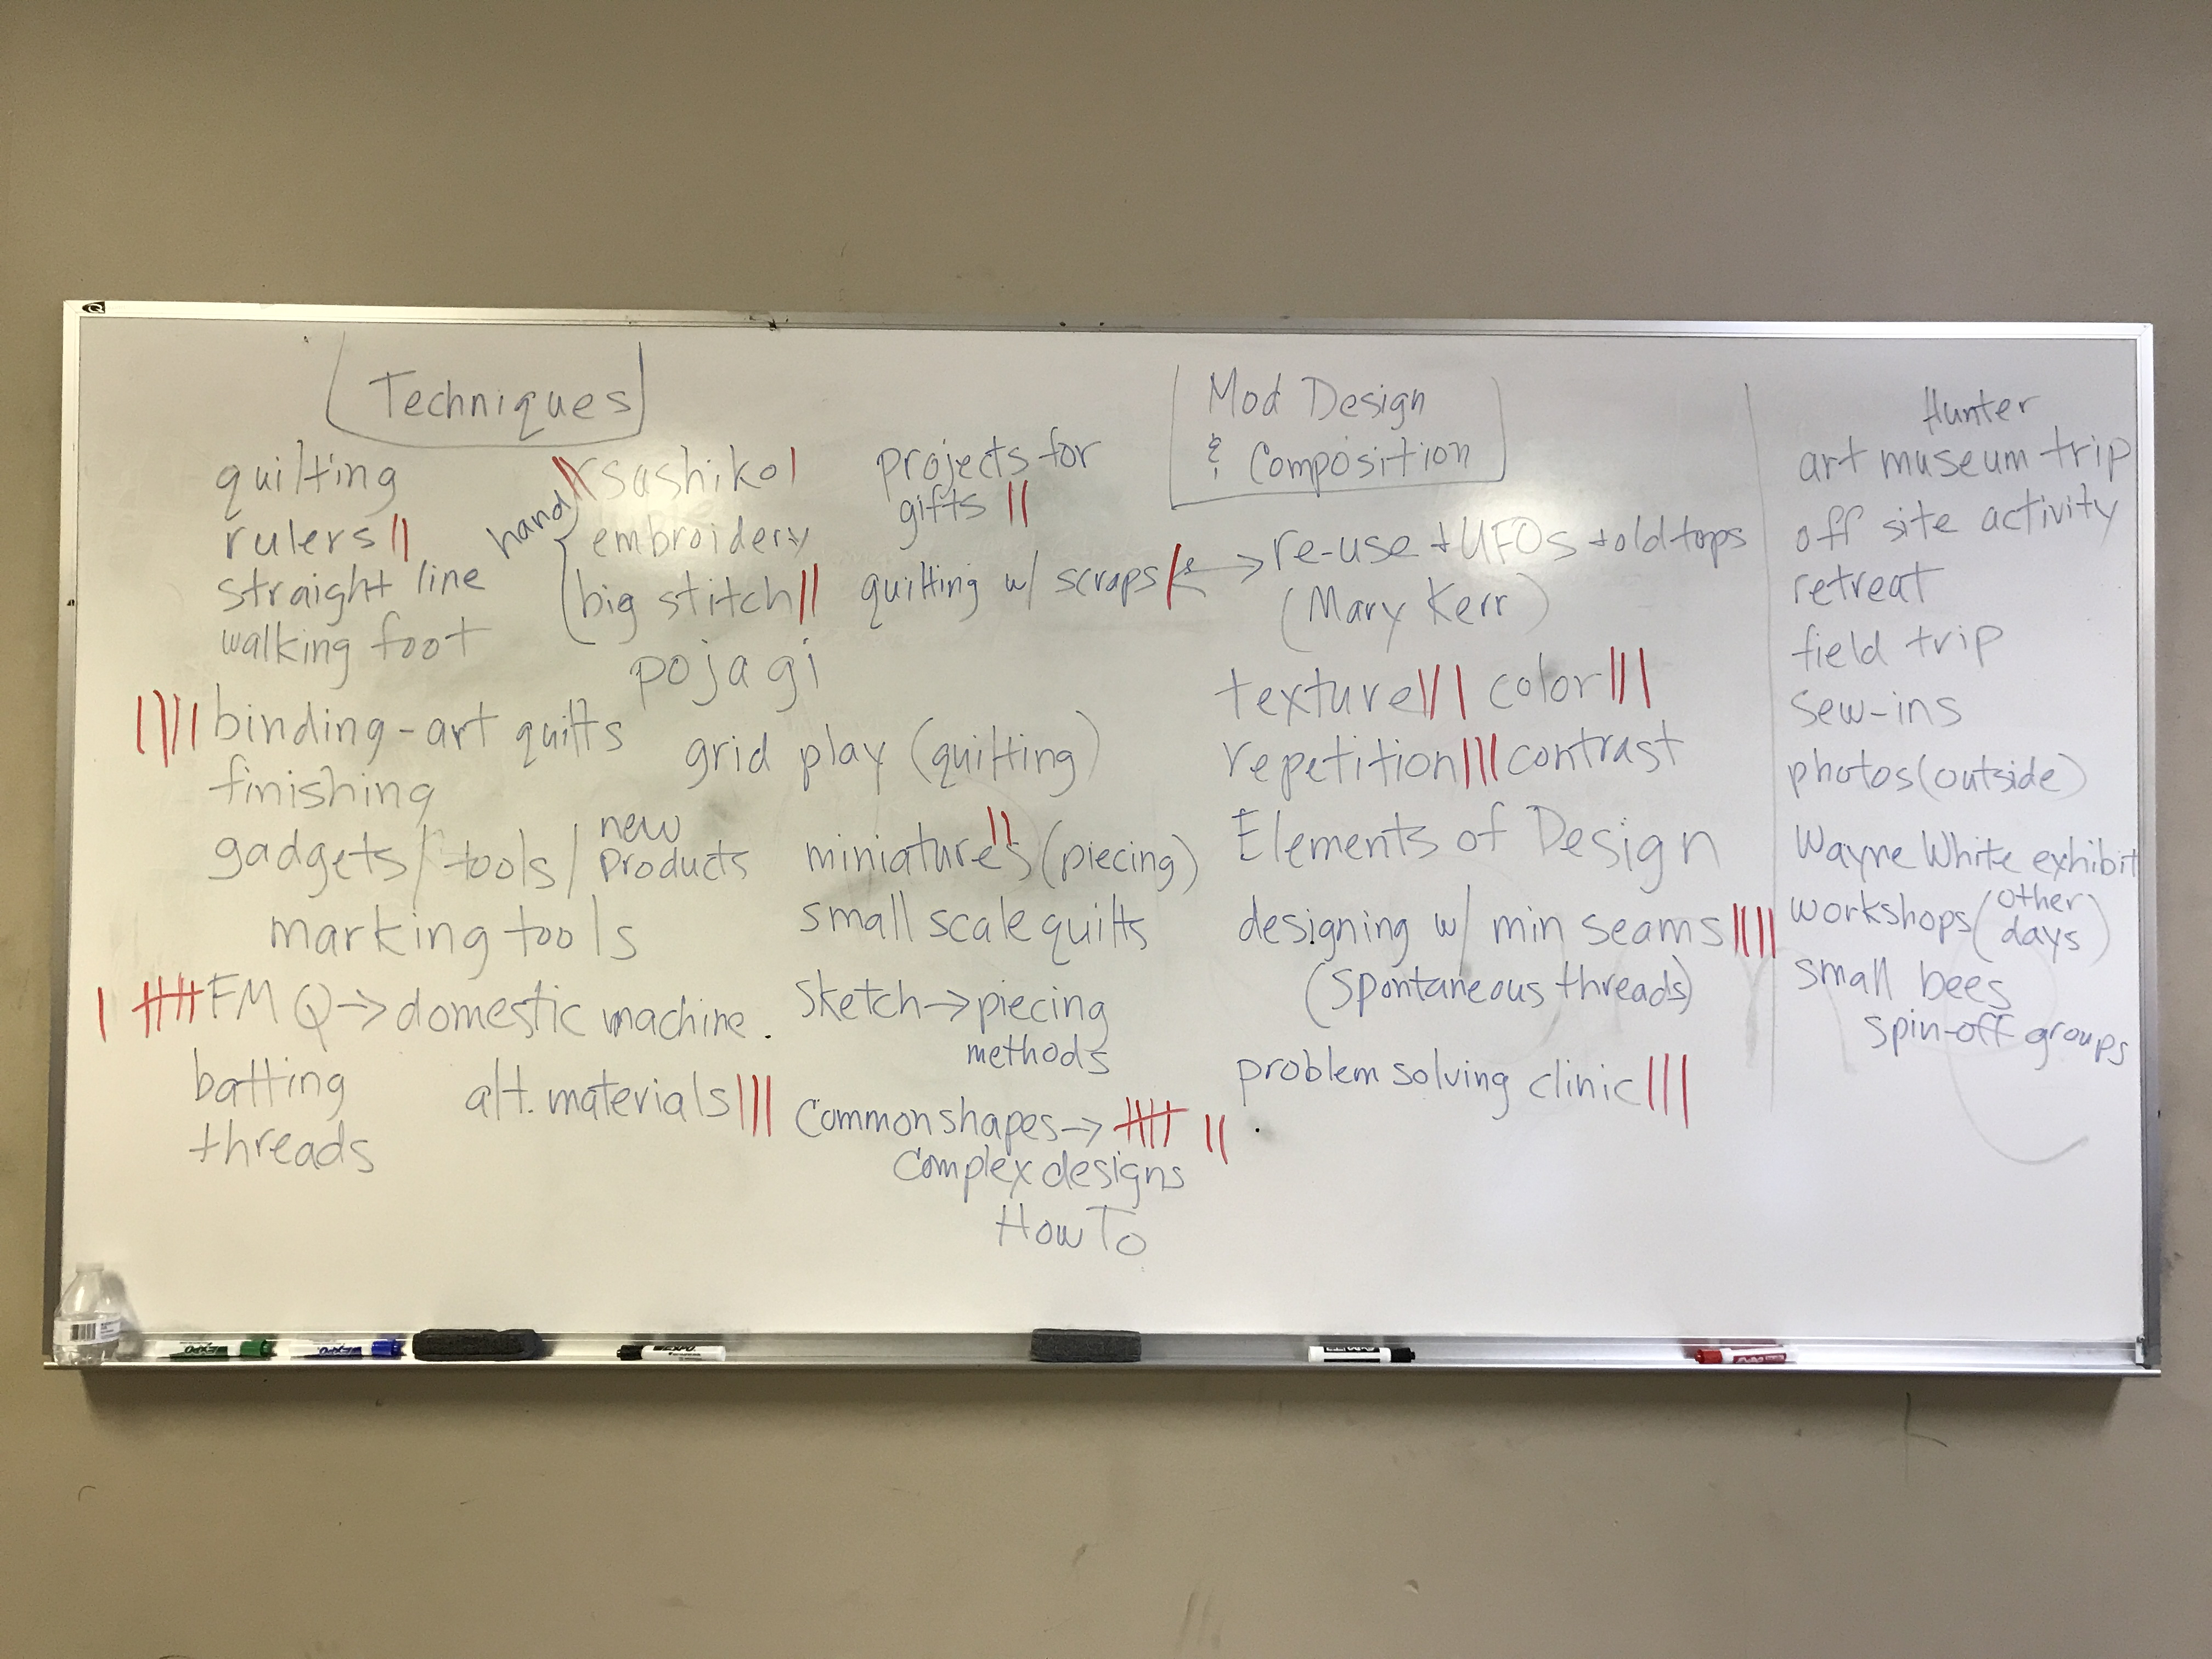 Techniques
quilting
rulers ||
straight line
walking foot
|||| binding - art quilts
finishing
gadgets / tools / new products
marking tools
| 卌 FMQ → domestic machine.
batting
threads
alt. materials |||
hand
|| sashiko |
embroidery
big stitch ||
pojagi
grid play (quilting)
projects for
gifts ||
quilting w/ scraps |
miniatures || (piecing)
small scale quilts
sketch → piecing
methods
Common shapes → 卌 ||
Complex designs
How To
Mod Design
& Composition
re-use + UFOs + old tops
(Mary Kerr)
texture ||| color |||
repetition ||| contrast
Elements of Design
designing w/ min seams ||||
(spontaneous threads)
problem solving clinic |||
Hunter
art museum trip
off site activity
retreat
field trip
sew-ins
photos (outside)
Wayne White exhibit
workshops (other days)
small bees
spin-off groups
EXPO
EXPO
EXPO